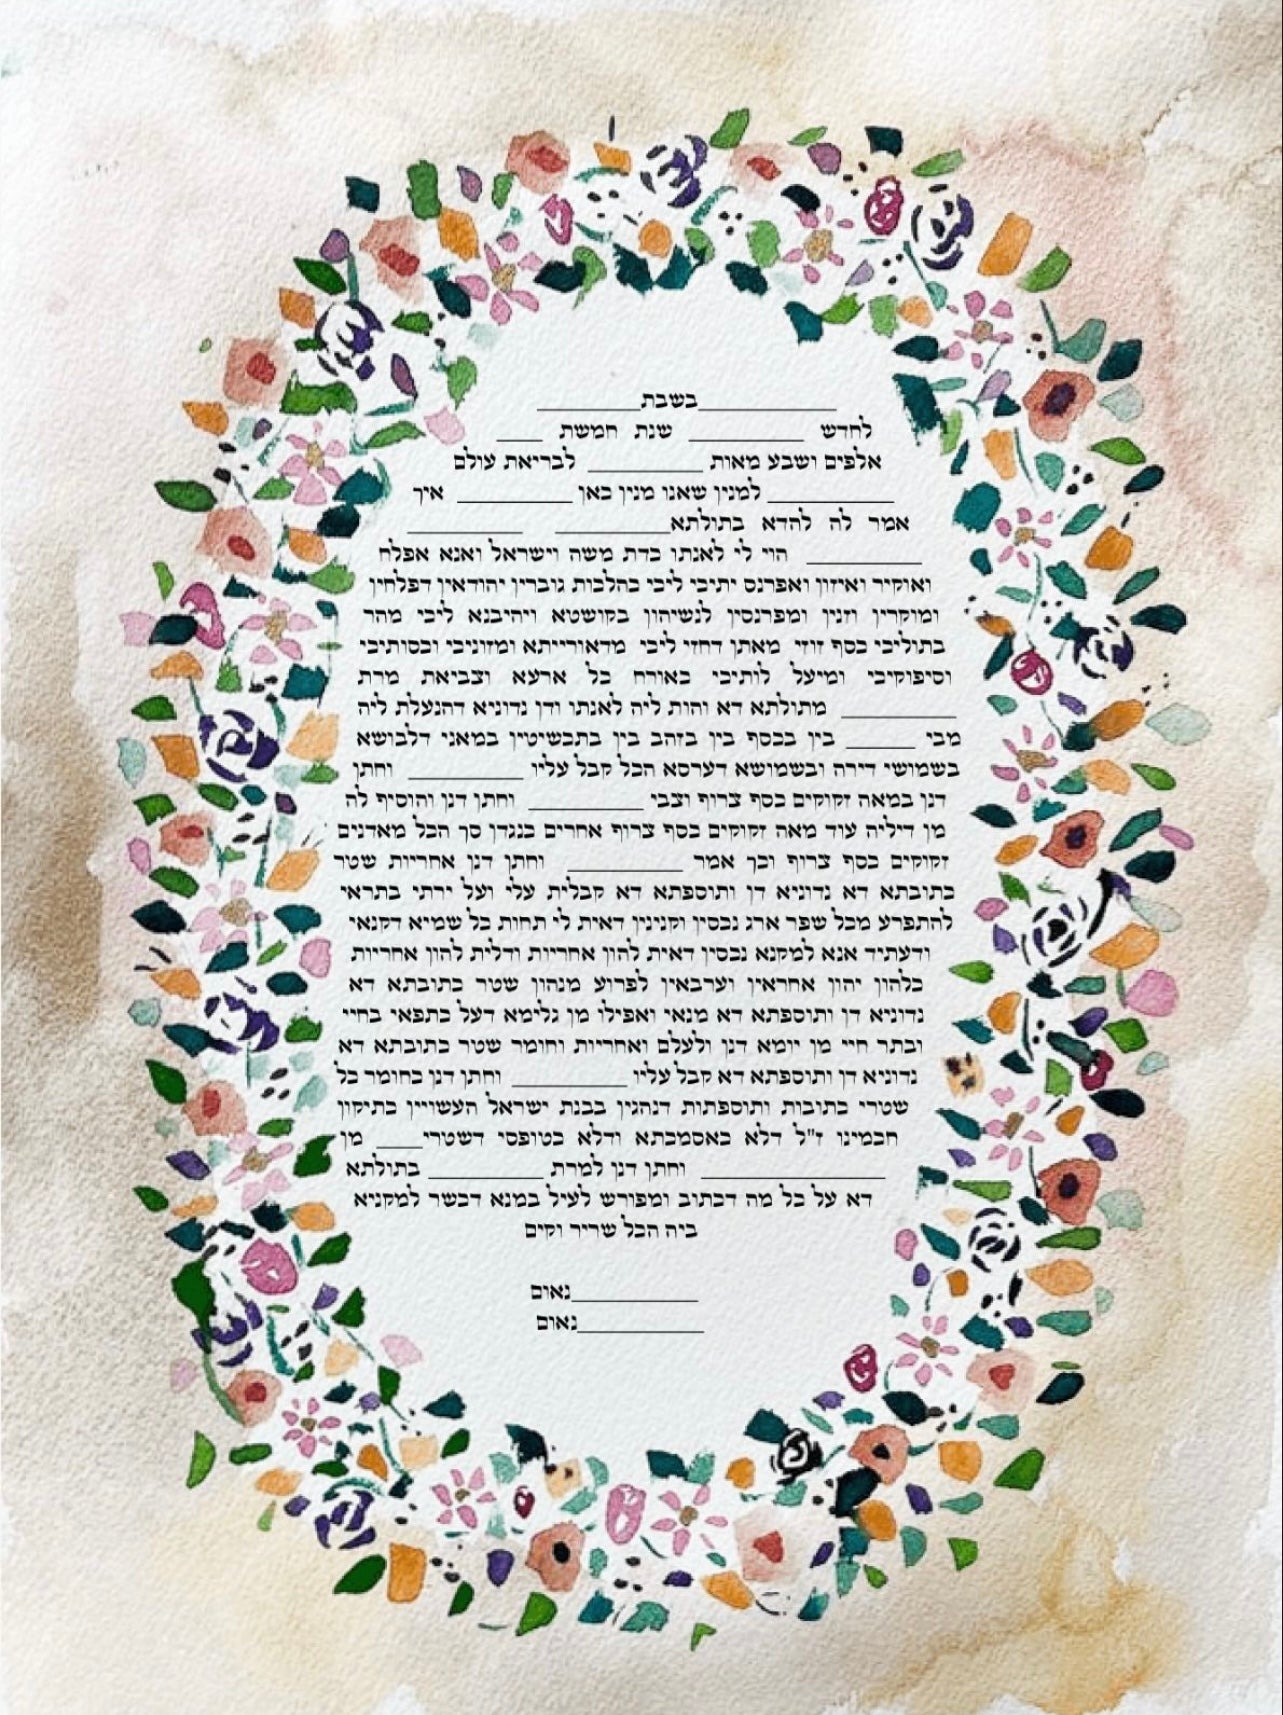 ____________בשבת_________
לחדש __________ שנת חמשת ____
אלפים ושבע מאות __________ לבריאת עולם
___________למנין שאנו מנין כאן __________ איך
אמר לה להדא בתולתא__________ __________
__________ הוי לי לאנתו כדת משה וישראל ואנא אפלח
ואוקיר ואיזון ואפרנס יתיכי ליכי כהלכות גוברין יהודאין דפלחין
ומוקרין וזנין ומפרנסין לנשיהון בקושטא ויהיבנא ליכי מהר
בתוליכי כסף זוזי מאתן דחזי ליכי מדאורייתא ומזוניכי וכסותיכי
וסיפוקיכי ומיעל לותיכי כאורח כל ארעא וצביאת מרת
__________ מתולתא דא והות ליה לאנתו ודן נדוניא דהנעלת ליה
מבי ______ בין בכסף בין בזהב בין בתכשיטין במאני דלבושא
בשמושי דירה ובשמושא דערסא הכל קבל עליו __________ וחתן
דנן במאה זקוקים כסף צרוף וצבי __________ וחתן דנן והוסיף לה
מן דיליה עוד מאה זקוקים כסף צרוף אחרים כנגדן סך הכל מאדנים
זקוקים כסף צרוף וכך אמר __________ וחתן דנן אחריות שטר
כתובתא דא נדוניא דן ותוספתא דא קבלית עלי ועל ירתי בתראי
להתפרע מכל שפר ארג נכסין וקנינין דאית לי תחות כל שמיא דקנאי
ודעתיד אנא למקנא נכסין דאית להון אחריות ודלית להון אחריות
כלהון יהון אחראין וערבאין לפרוע מנהון שטר כתובתא דא
נדוניא דן ותוספתא דא מנאי ואפילו מן גלימא דעל כתפאי בחיי
ובתר חיי מן יומא דנן ולעלם ואחריות וחומר שטר כתובתא דא
נדוניא דן ותוספתא דא קבל עליו __________ וחתן דנן כחומר כל
שטרי כתובות ותוספתות דנהגין בבנת ישראל העשויין כתיקון
חכמינו ז"ל דלא כאסמכתא ודלא כטופסי דשטרי____ מן
________________ וחתן דנן למרת __________ בתולתא
דא על כל מה דכתוב ומפורש לעיל במנא דכשר למקניא
ביה הכל שריר וקים
___________נאום
___________נאום